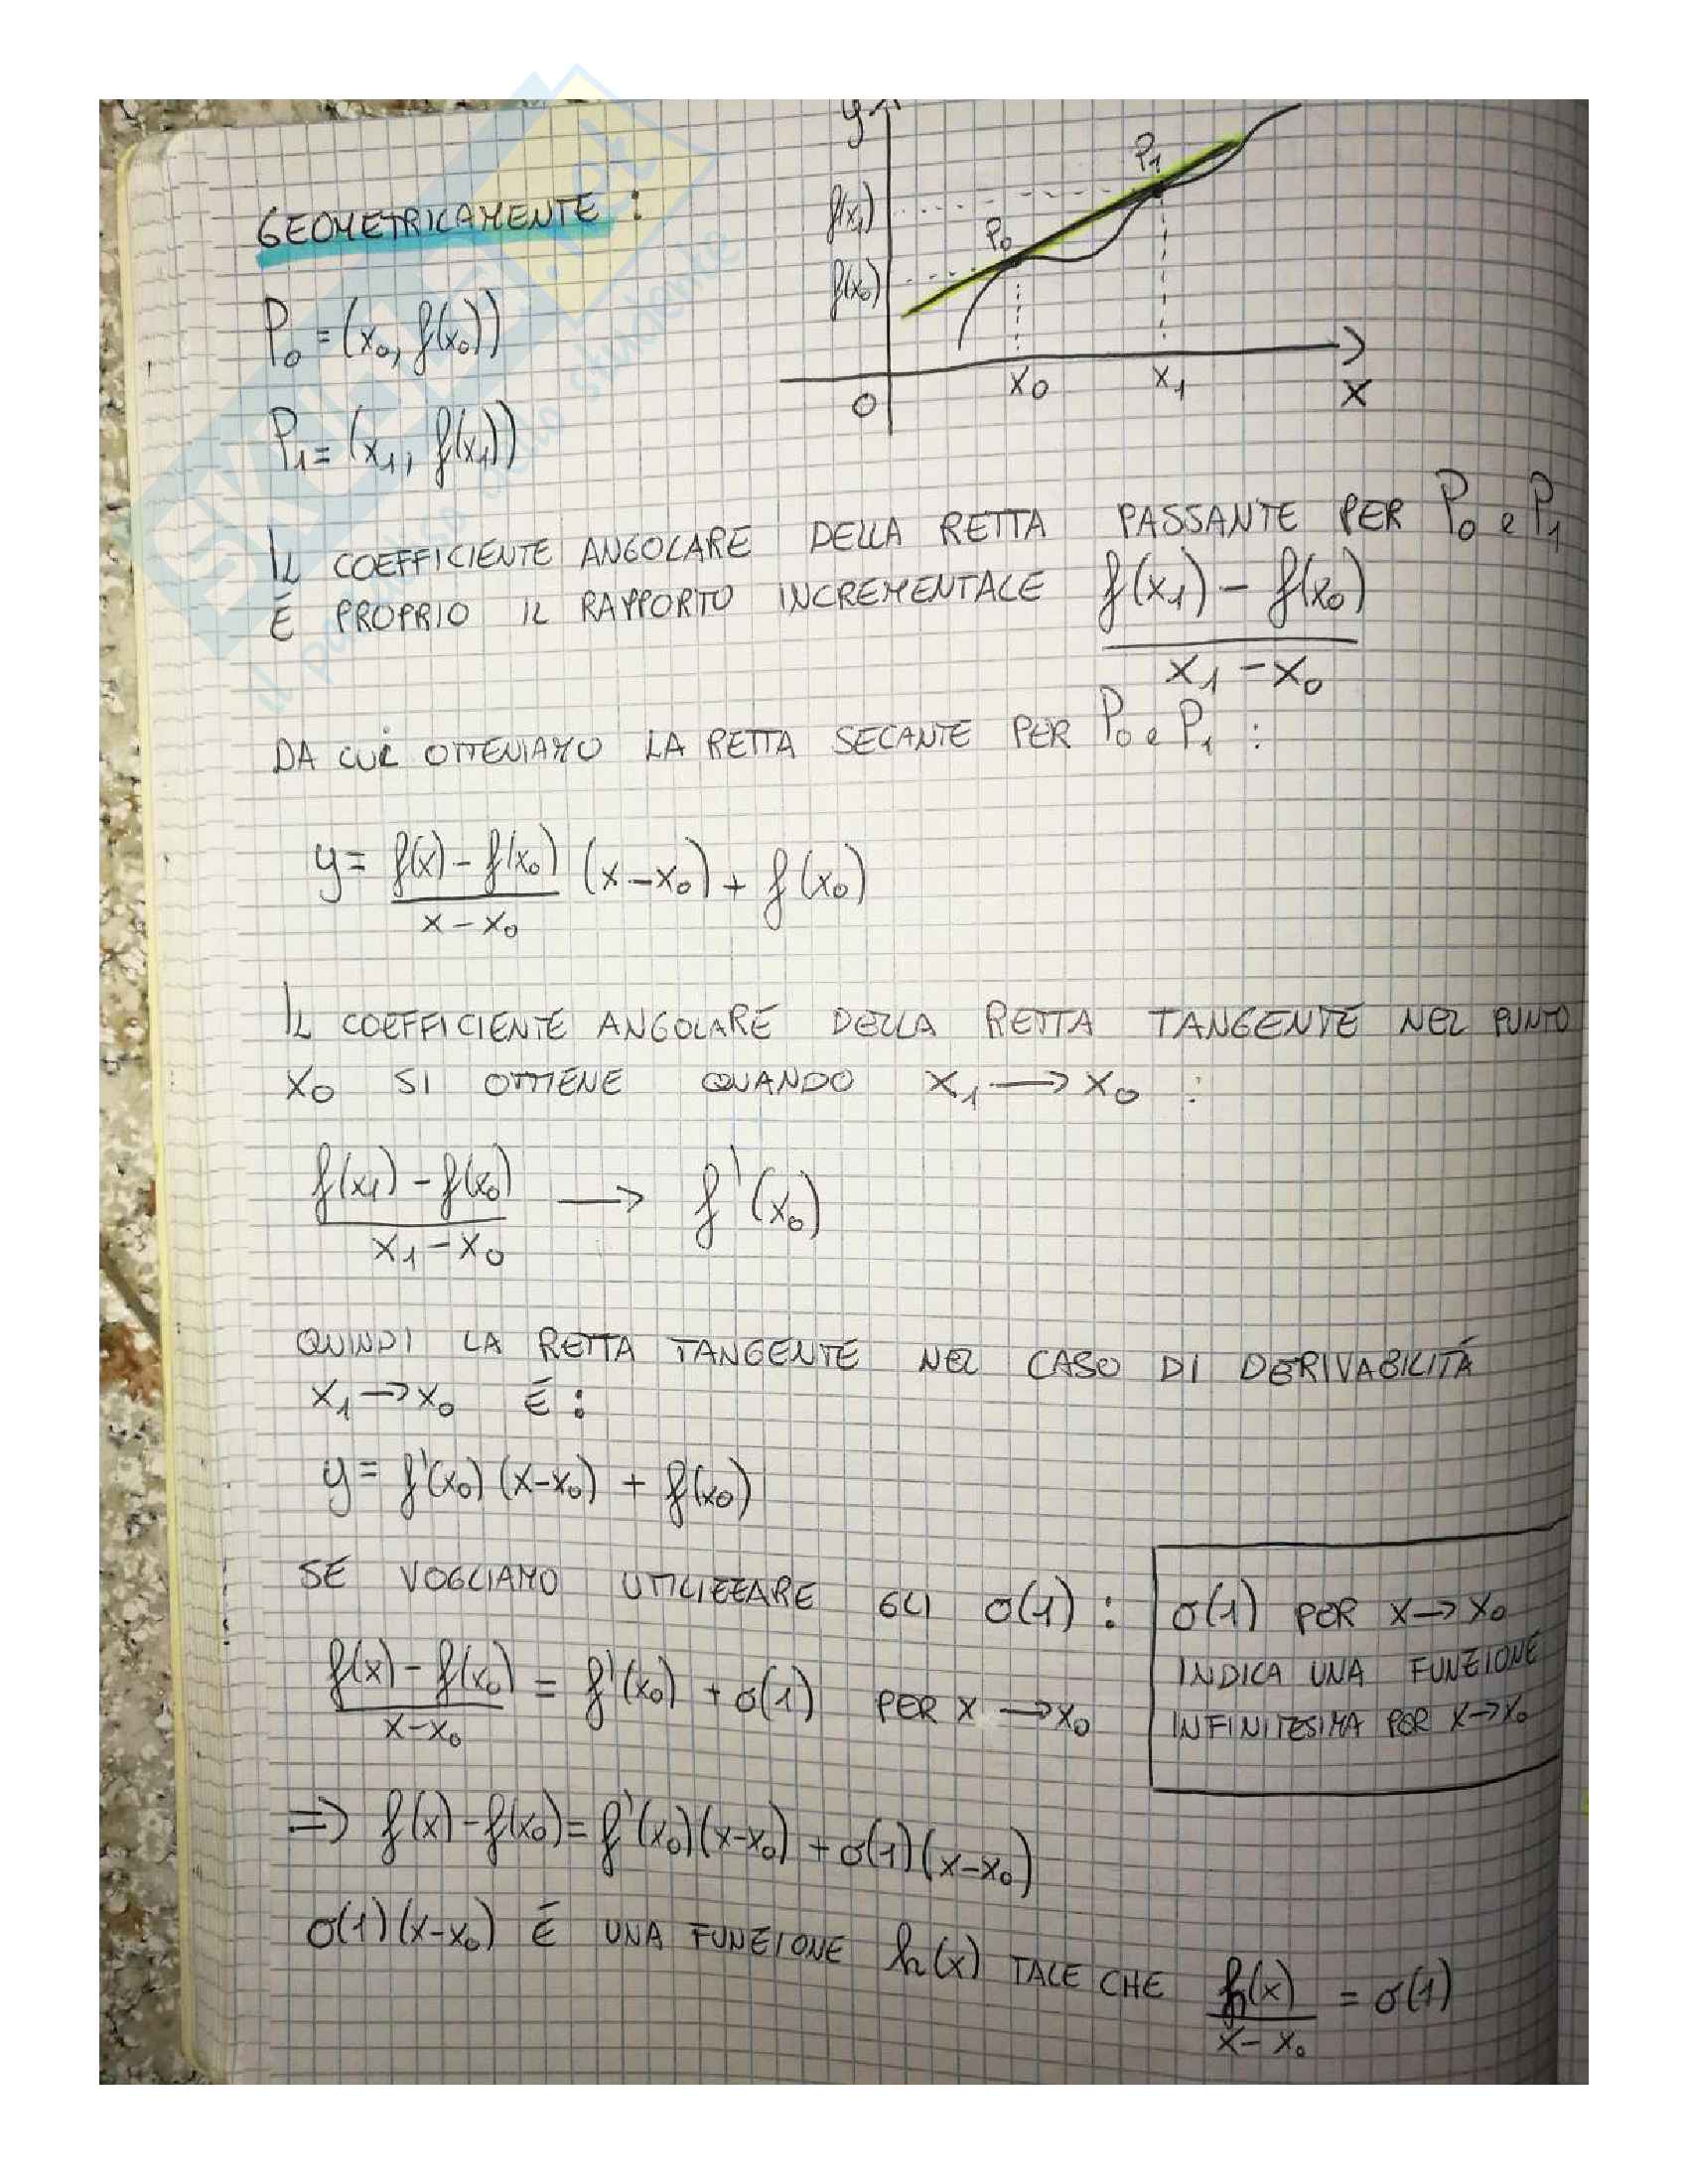 y
P₁
f(x₁)
GEOMETRICAMENTE :
P₀
f(x₀)
P₀ = (x₀, f(x₀))
x₀ x₁
O x
P₁ = (x₁, f(x₁))
IL COEFFICIENTE ANGOLARE DELLA RETTA PASSANTE PER P₀ e P₁
É PROPRIO IL RAPPORTO INCREMENTALE f(x₁) - f(x₀)
x₁ - x₀
DA CUI OTTENIAMO LA RETTA SECANTE PER P₀ e P₁ :
y = f(x) - f(x₀) (x - x₀) + f(x₀)
x - x₀
IL COEFFICIENTE ANGOLARE DELLA RETTA TANGENTE NEL PUNTO
x₀ SI OTTIENE QUANDO x₁ → x₀ :
f(x₁) - f(x₀) → f'(x₀)
x₁ - x₀
QUINDI LA RETTA TANGENTE NEL CASO DI DERIVABILITÁ
x₁ → x₀ É :
y = f'(x₀) (x - x₀) + f(x₀)
SE VOGLIAMO UTILIZZARE GLI σ(1) :
f(x) - f(x₀) = f'(x₀) + σ(1) PER x → x₀
x - x₀
σ(1) PER x → x₀
INDICA UNA FUNZIONE
INFINITESIMA PER x → x₀
⇒ f(x) - f(x₀) = f'(x₀)(x - x₀) + σ(1)(x - x₀)
σ(1)(x - x₀) É UNA FUNZIONE h(x) TALE CHE h(x) = σ(1)
x - x₀
SKUOLA.net
il paradiso dello studente